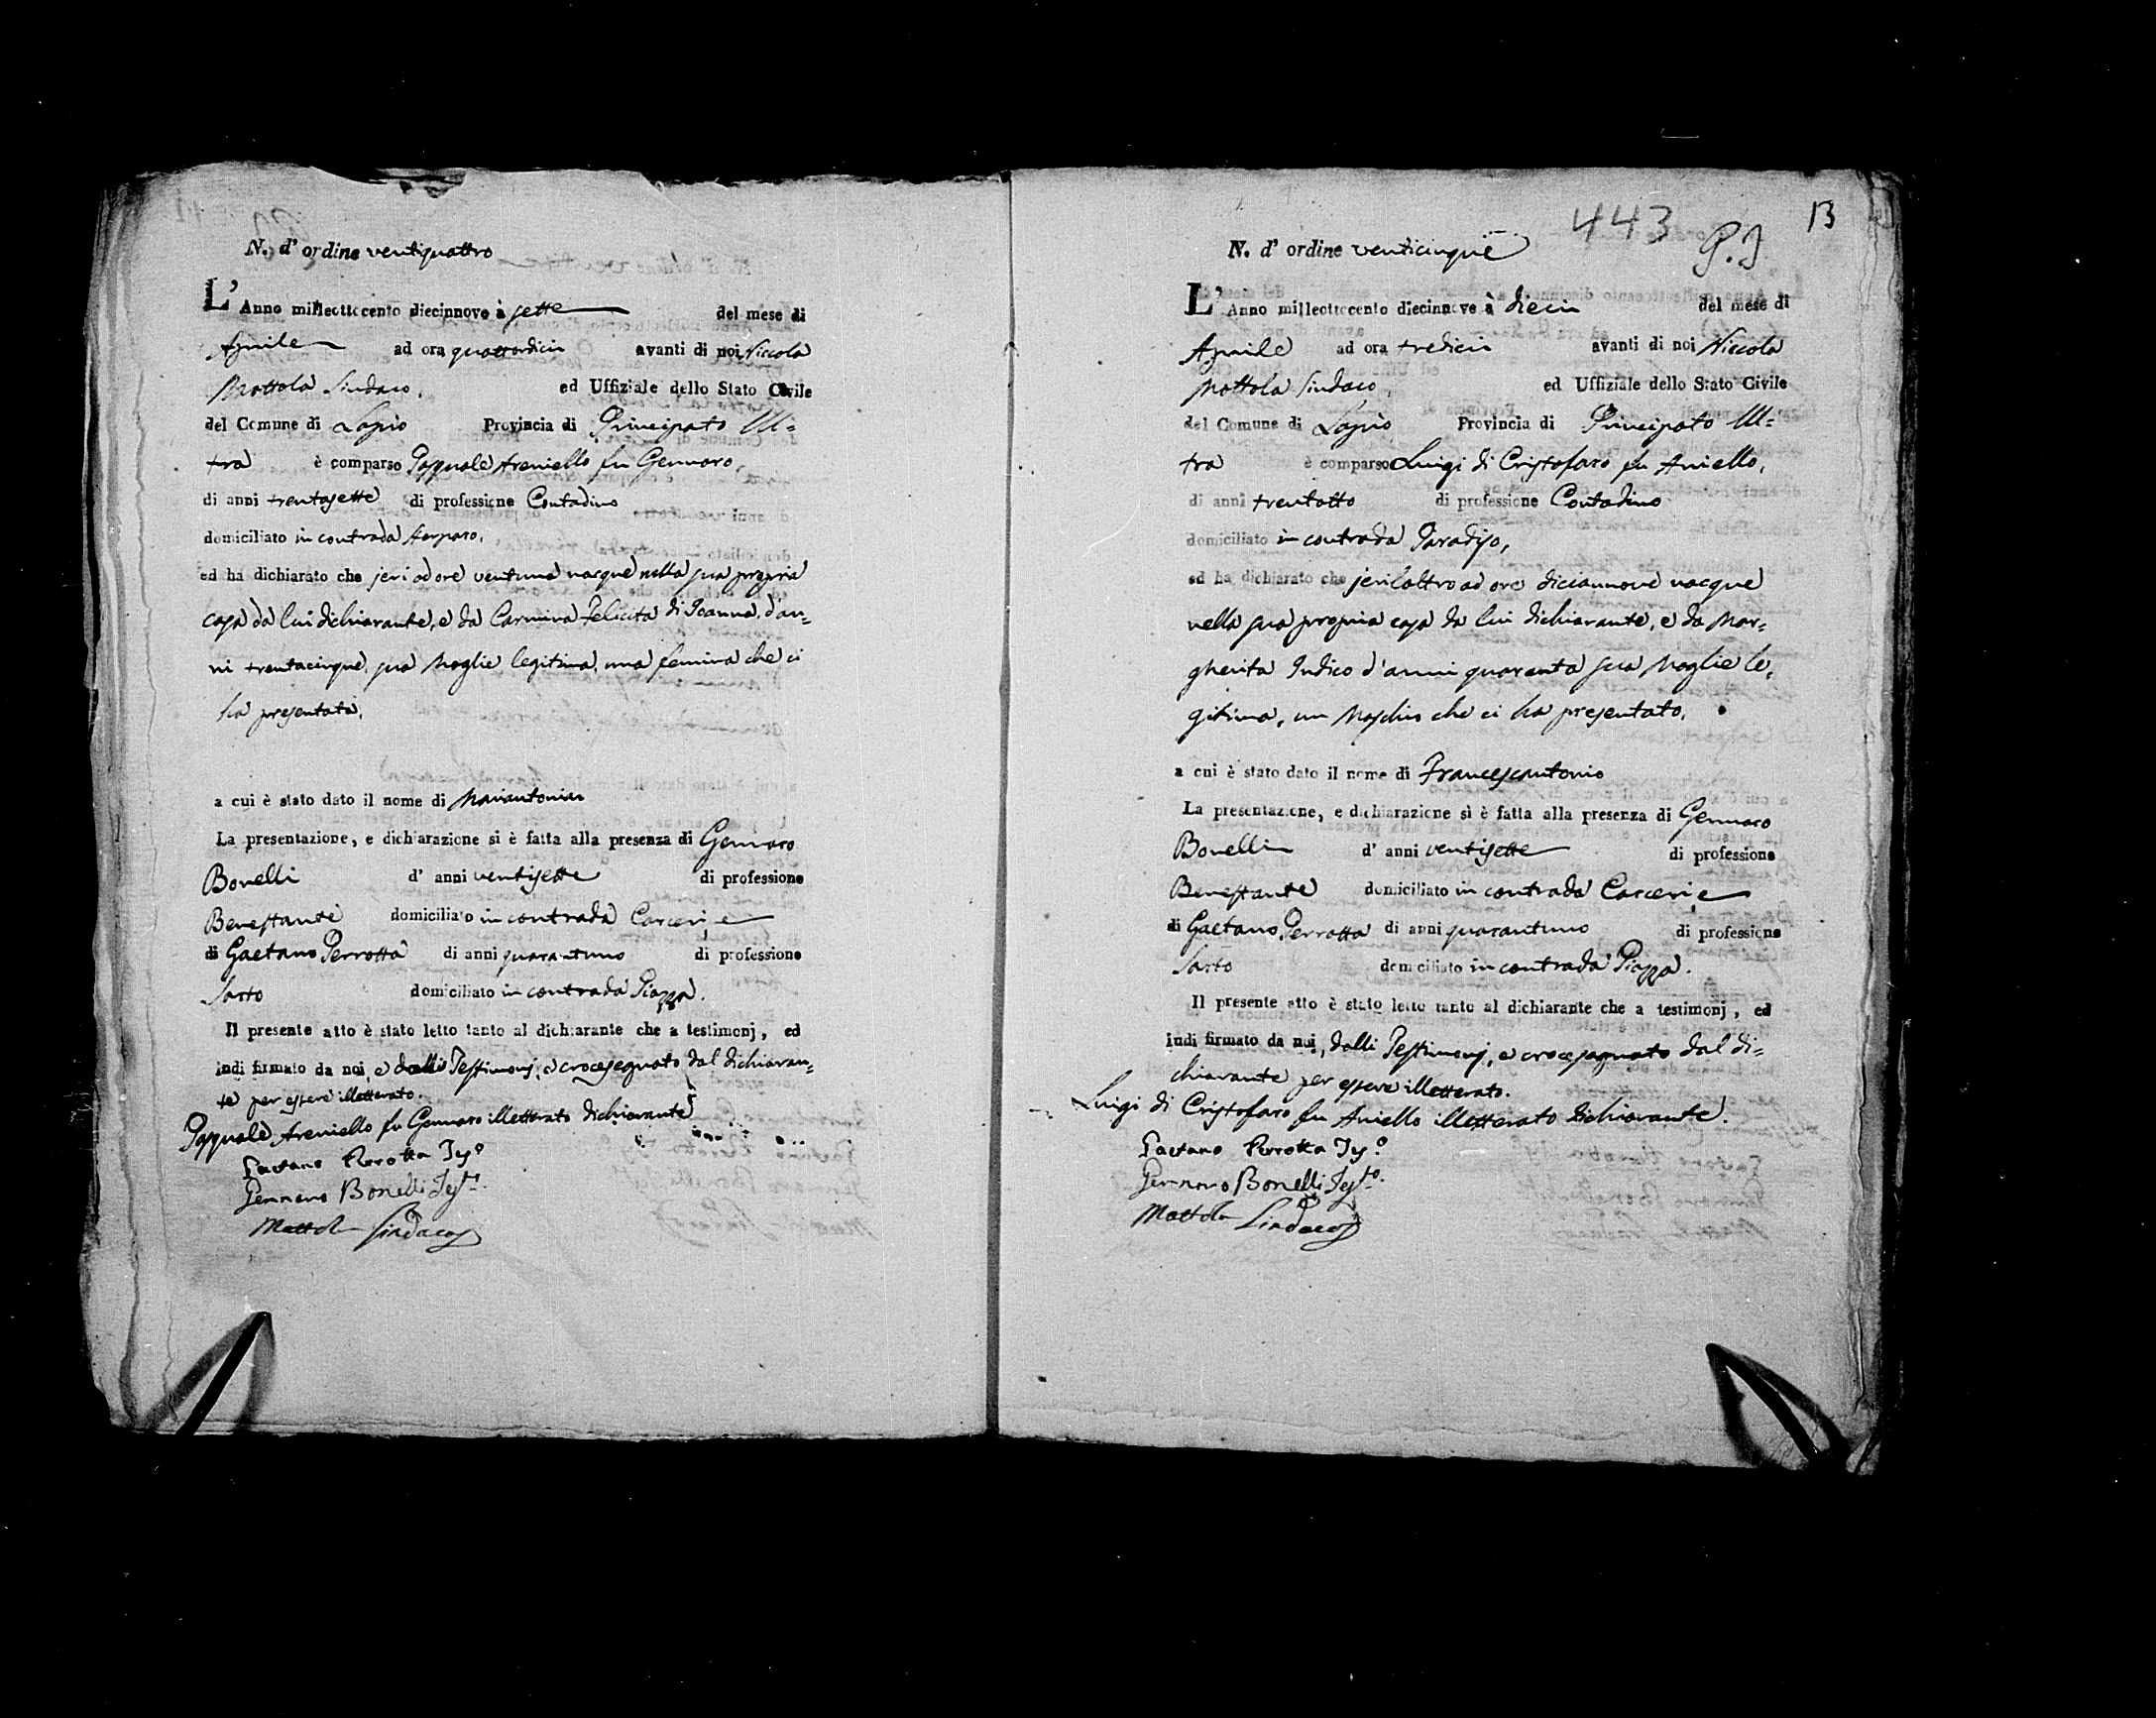 N. d' ordine ventiquattro
L' Anno milleottocento diecinnove à sette del mese di
Aprile ad ora quattordici avanti di noi Niccola
Mottola Sindaco, ed Uffiziale dello Stato Civile
del Comune di Lapio Provincia di Principato Ul=
tra è comparso Pasquale Areniello fu Gennaro,
di anni trentasette di professione Contadino
domiciliato in contrada
ed ha dichiarato che jeri ad ore ventuna nacque nella sua propria
casa da lui dichiarante, e da Carmina Felicita di Joanna, d'an=
ni trentacinque, sua Moglie legitima, una femina che ci
ha presentata,
a cui è stato dato il nome di Mariantonia
La presentazione, e dichiarazione si è fatta alla presenza di Gennaro
Bonelli d' anni ventisette di professione
Benestante domiciliato in contrada Carceri, e
di Gaetano Perrotta di anni quarantuno di professione
Sarto domiciliato in contrada Piazza.
Il presente atto è stato letto tanto al dichiarante che a testimonj, ed
indi firmato da noi, e dalli Testimonj, e crocesegnato dal dichiaran=
te per essere illetterato.
Pasquale Areniello fu Gennaro illetterato dichiarante
Gaetano Perrotta Tes.o
Gennaro Bonelli Test.o
Mottola Sindaco
443 P. J 13
N. d' ordine venticinque
L' Anno milleottocento diecinnove à dieci del mese di
Aprile ad ora tredici avanti di noi Niccola
Mottola Sindaco, ed Uffiziale dello Stato Civile
del Comune di Lapio Provincia di Principato Ul=
tra è comparso Luigi di Cristofaro fu Aniello,
di anni trentotto di professione Contadino
domiciliato in contrada Paradiso,
ed ha dichiarato che jeri l'altro ad ore diciannove nacque
nella sua propria casa da lui dichiarante, e da Mar=
gherita Indico d'anni quaranta sua Moglie le=
gitima, un Maschio che ci ha presentato,
a cui è stato dato il nome di Francescantonio
La presentazione, e dichiarazione si è fatta alla presenza di Gennaro
Bonelli d' anni ventisette di professione
Benestante domiciliato in contrada Carceri, e
di Gaetano Perrotta di anni quarantuno di professione
Sarto domiciliato in contrada Piazza.
Il presente atto è stato letto tanto al dichiarante che a testimonj, ed
indi firmato da noi, dalli Testimonj, e crocesegnato dal di=
chiarante per essere illetterato.
Luigi di Cristofaro fu Aniello illetterato dichiarante.
Gaetano Perrotta Tes.o
Gennaro Bonelli Test.o
Mottola Sindaco